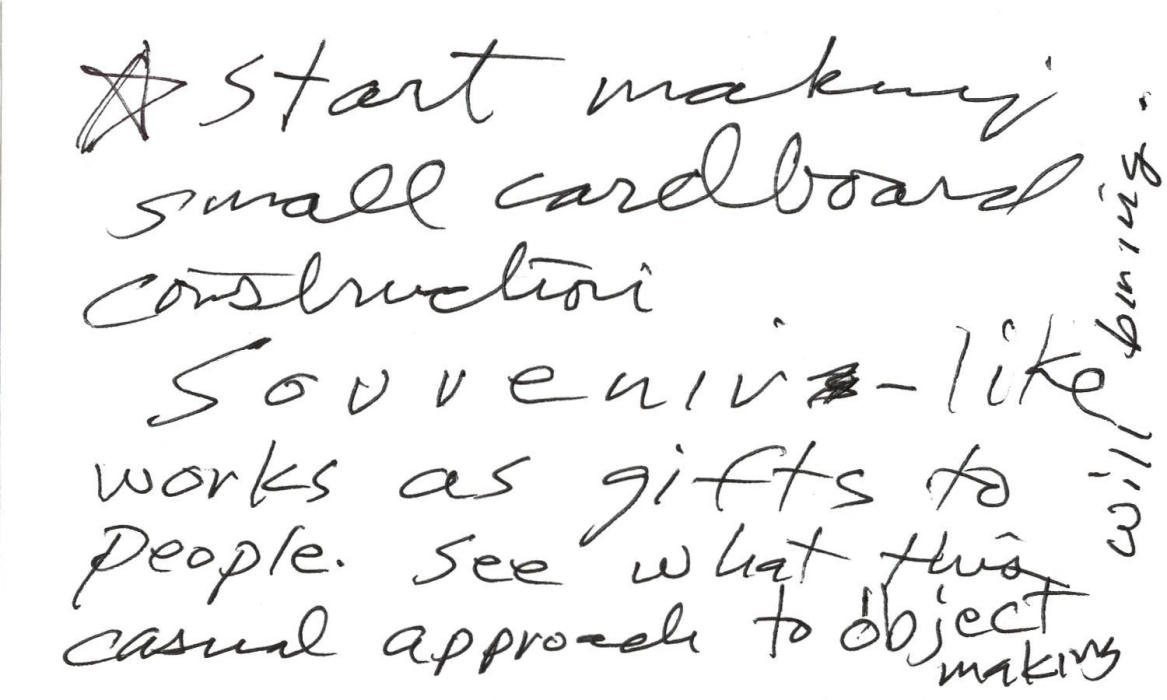 ☆ Start making
small cardboard
construction
Souvenir-like
works as gifts to
people. See what this
casual approach to object
making
will bring.